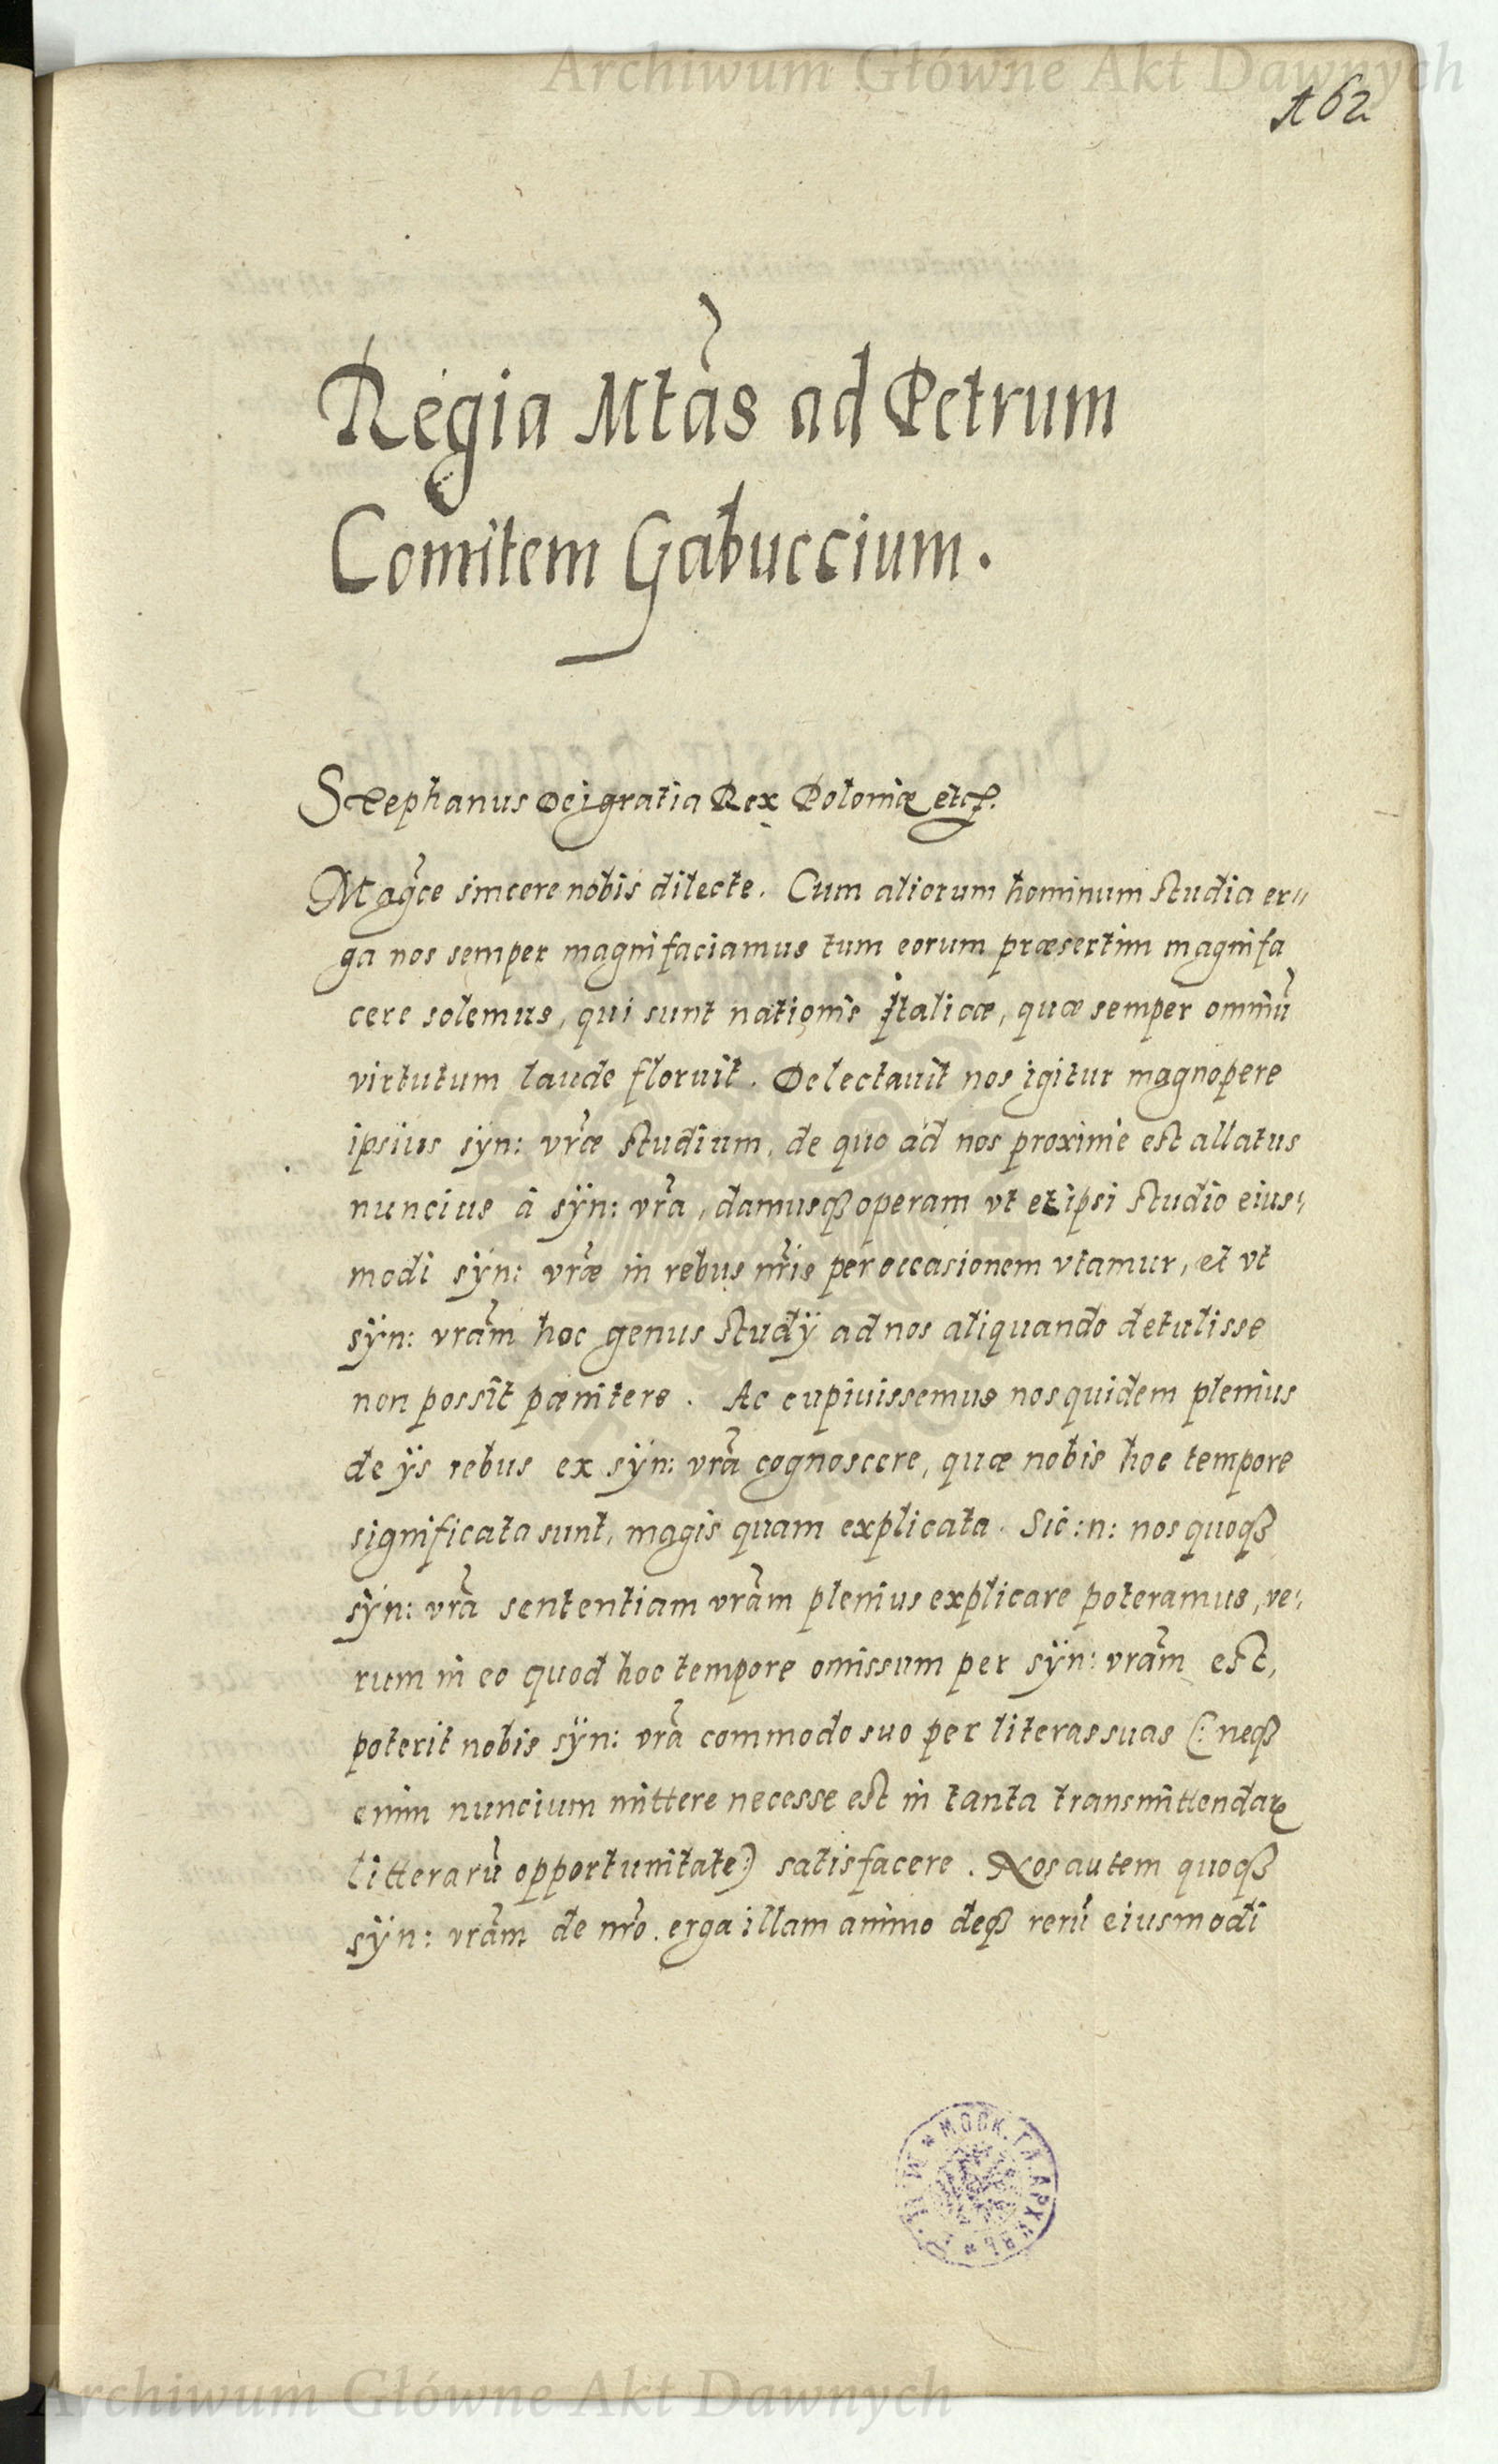 Archiwum Główne Akt Dawnych
162
Regia Mtãs ad Petrum
Comitem Gabuccium.
Stephanus Dei gratia Rex Poloniæ etc.
Magce sincere nobis dilecte. Cum aliorum hominum studia er„
ga nos semper magnifaciamus tum eorum præsertim magnifa
cere solemus, qui sunt nationis Italicæ, quæ semper omniũ
virtutum laude floruit. Delectauit nos igitur magnopere
ipsius sÿn: vræ studium, de quo ad nos proxime est allatus
nuncius à sÿn: vra, damusqß operam vt et ipsi studio eius:
modi sÿn: vræ in rebus nris per occasionem vtamur, et vt
sÿn: vram hoc genus studÿ ad nos aliquando detulisse
non possit pænitere. Ac cupiuissemus nos quidem plenius
de ÿs rebus ex sÿn: vra cognoscere, quæ nobis hoc tempore
significata sunt, magis quam explicata. Sic :n: nos quoqß
sÿn: vra sententiam vram plenius explicare poteramus, ve:
rum in eo quod hoc tempore omissum per sÿn: vram est,
poterit nobis sÿn: vra commodo suo per literas suas (: neqß
enim nuncium mittere necesse est in tanta transmittendaꝝ
litterarũ opportunitate:) satisfacere. Nos autem quoqß
sÿn: vram de nro erga illam animo deqß rerũ eiusmodi
МОСК. ГЛ. АРХИВЪ
Archiwum Główne Akt Dawnych